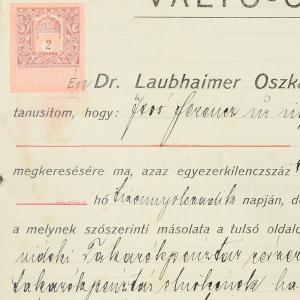 VÁLTÓ-Ó
2
KORONA
Én Dr. Laubhaimer Oszká
tanusítom, hogy: Joó Ferencz úr
megkeresésére ma, azaz egyezerkilenczszáz
hó tizennyolcadik napján, d
a melynek szószerinti másolata a túlsó oldalo
vidéki Takarékpénztár részvén
takarékpénztár elnökének ha